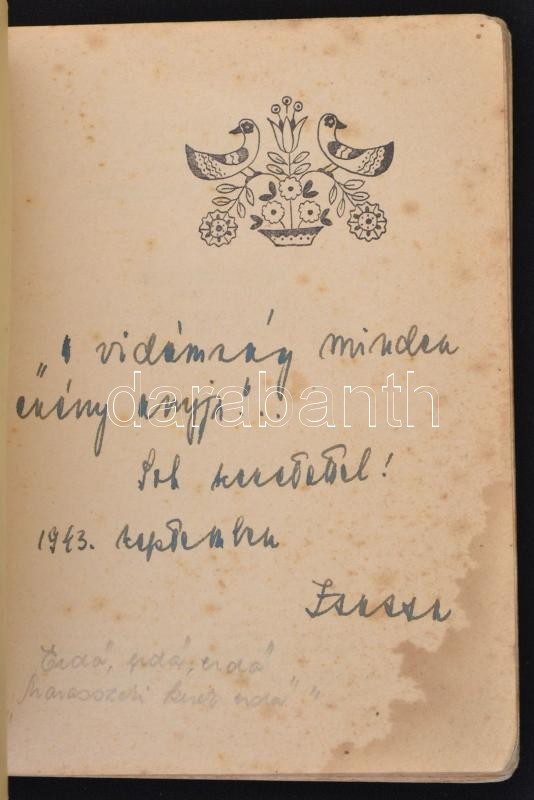 "A vidámság minden
erény anyja"!
Sok szeretettel!
darabanth
1943. szeptember
Erdő, erdő, erdő
Marosszéki kerek erdő"